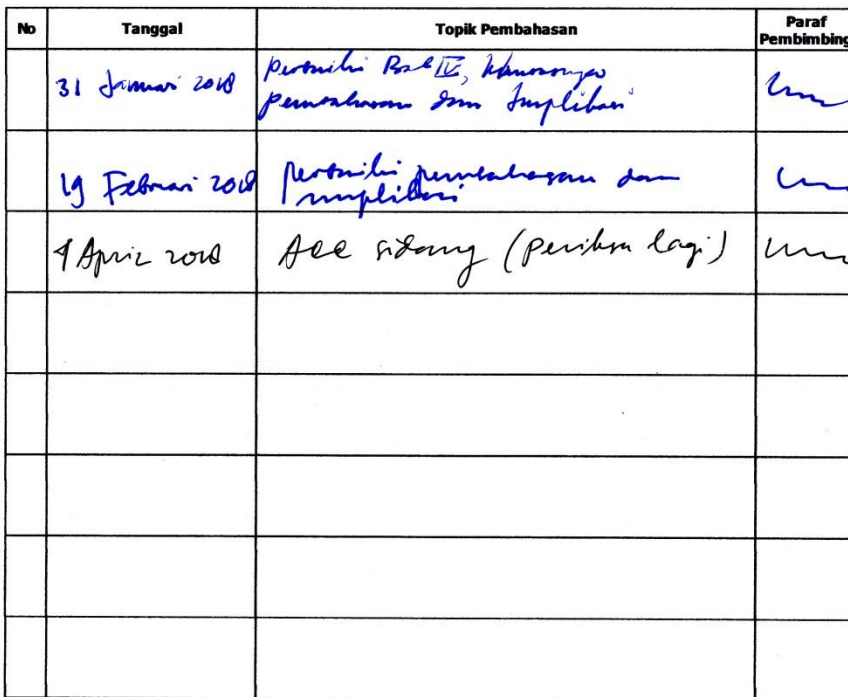 No Tanggal Topik Pembahasan Paraf Pembimbing
31 Januari 2018 Perbaiki Bab IV, khususnya
pembahasan dan Implikasi
19 Februari 2018 perbaiki pembahasan dan
implikasi
April 2018 Acc sidang (periksa lagi)